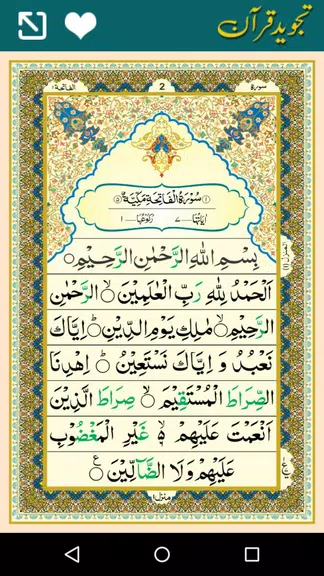 تجوید قرآن
سورة
2
الفاتحة
سُوْرَةُ الْفَاتِحَةِ مَكِّيَّةٌ
اٰیَاتُهَا ۷ رُکُوْعُهَا ۱
بِسْمِ اللّٰهِ الرَّحْمٰنِ الرَّحِیْمِ
اَلْحَمْدُ لِلّٰهِ رَبِّ الْعٰلَمِیْنَ ۙ الرَّحْمٰنِ
الرَّحِیْمِ ۙ مٰلِكِ یَوْمِ الدِّیْنِ ؕ اِیَّاكَ
نَعْبُدُ وَ اِیَّاكَ نَسْتَعِیْنُ ؕ اِهْدِنَا
الصِّرَاطَ الْمُسْتَقِیْمَ ۙ صِرَاطَ الَّذِیْنَ
اَنْعَمْتَ عَلَیْهِمْ غَیْرِ الْمَغْضُوْبِ
عَلَیْهِمْ وَلَا الضَّآلِّیْنَ
منزل۱